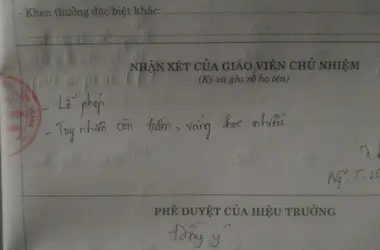 - Khen thưởng đặc biệt khác:
NHẬN XÉT CỦA GIÁO VIÊN CHỦ NHIỆM
(Ký và ghi rõ họ tên)
- Lễ phép
- Tuy nhiên còn trầm, vắng học nhiều
Ng. T.
PHÊ DUYỆT CỦA HIỆU TRƯỞNG
Đồng ý